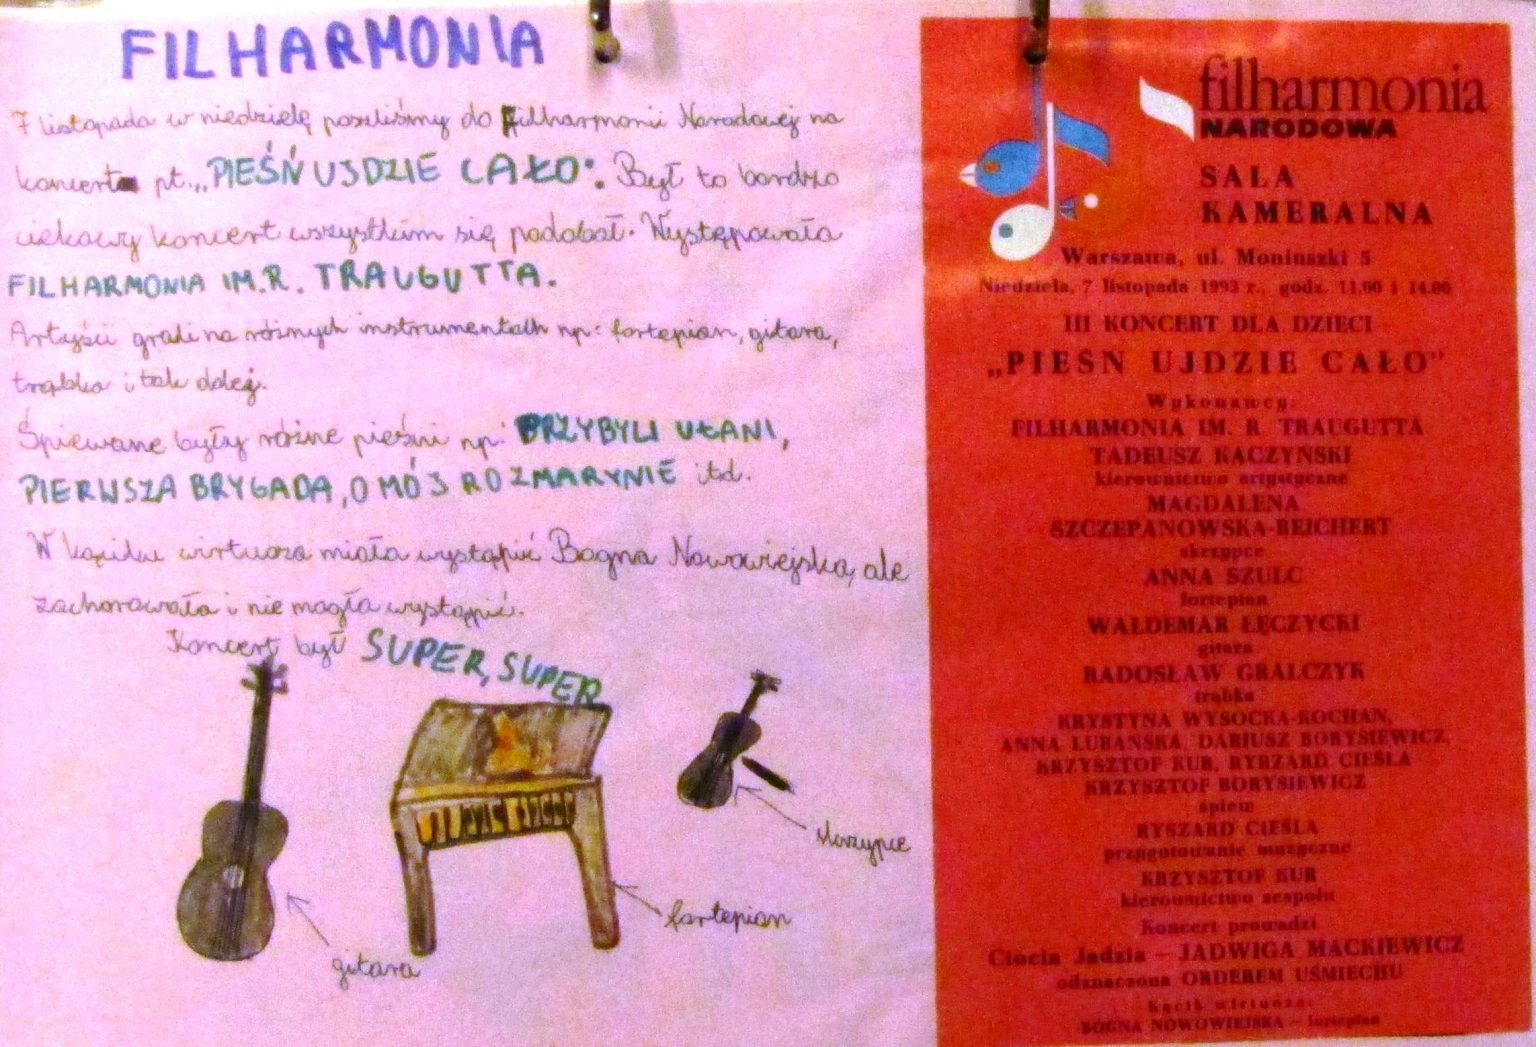 FILHARMONIA
7 listopada w niedzielę poszliśmy do Filharmonii Narodowej na
koncert pt. „PIEŚŃ UJDZIE CAŁO". Był to bardzo
ciekawy koncert wszystkim się podobał. Występowała
FILHARMONIA IM. R. TRAUGUTTA.
Artyści grali na różnych instrumentach np: fortepian, gitara,
trąbka i tak dalej.
Śpiewane były różne pieśni np: PRZYBYLI UŁANI,
PIERWSZA BRYGADA, O MÓJ ROZMARYNIE itd.
W kąciku wirtuoza miała wystąpić Bogna Nowowiejska, ale
zachorowała i nie mogła wystąpić.
Koncert był SUPER, SUPER
skrzypce
fortepian
gitara
filharmonia
NARODOWA
SALA
KAMERALNA
Warszawa, ul. Moniuszki 5
Niedziela, 7 listopada 1993 r., godz. 11.00 i 14.00
III KONCERT DLA DZIECI
„PIEŚŃ UJDZIE CAŁO"
Wykonawcy:
FILHARMONIA IM. R. TRAUGUTTA
TADEUSZ KACZYŃSKI
kierownictwo artystyczne
MAGDALENA
SZCZEPANOWSKA-REICHERT
skrzypce
ANNA SZULC
fortepian
WALDEMAR ŁĘCZYCKI
gitara
RADOSŁAW GRALCZYK
trąbka
KRYSTYNA WYSOCKA-KOCHAN,
ANNA LUBAŃSKA, DARIUSZ BORYSIEWICZ,
KRZYSZTOF KUR, RYRZARD CIEŚLA
KRZYSZTOF BORYSIEWICZ
śpiew
RYSZARD CIEŚLA
przygotowanie muzyczne
KRZYSZTOF KUR
kierownictwo zespołu
Koncert prowadzi
Ciocia Jadzia – JADWIGA MACKIEWICZ
odznaczona ORDEREM UŚMIECHU
Kącik wirtuoza:
BOGNA NOWOWIEJSKA – fortepian